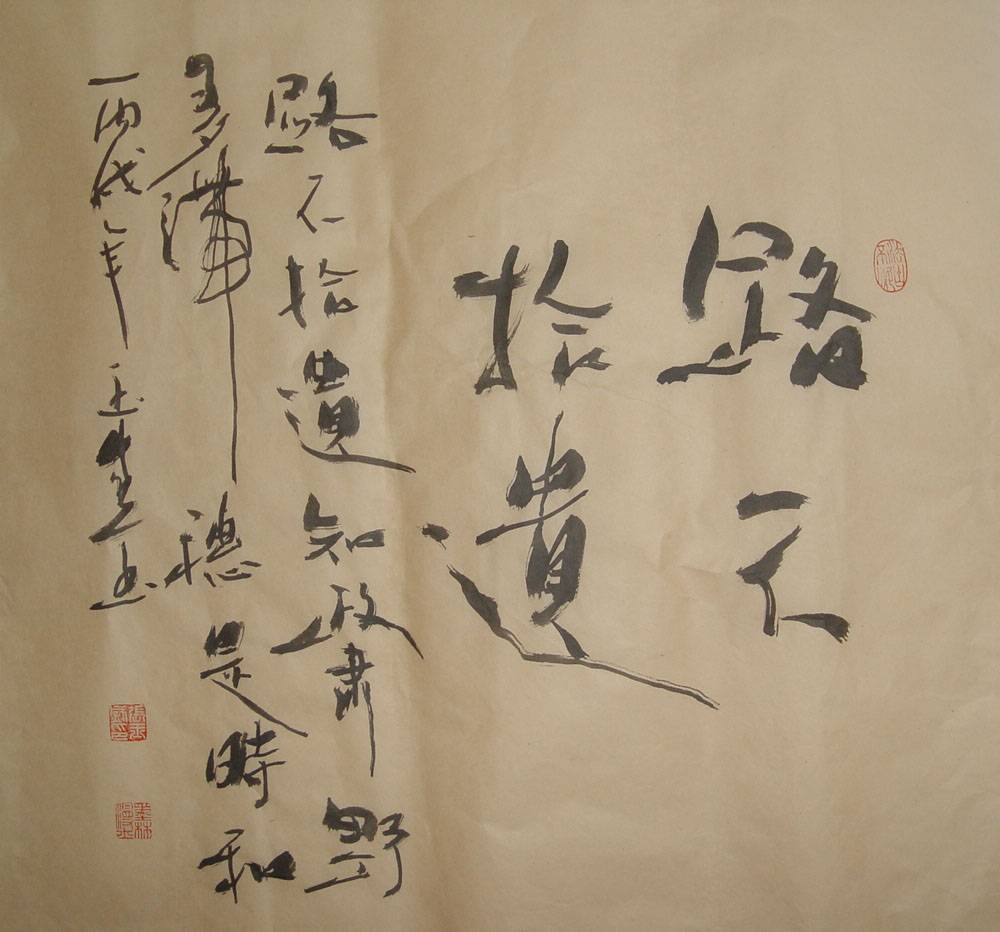 路不
拾遺
路不拾遺知政肅野
多滯穗是時和
丙戌年玉生書